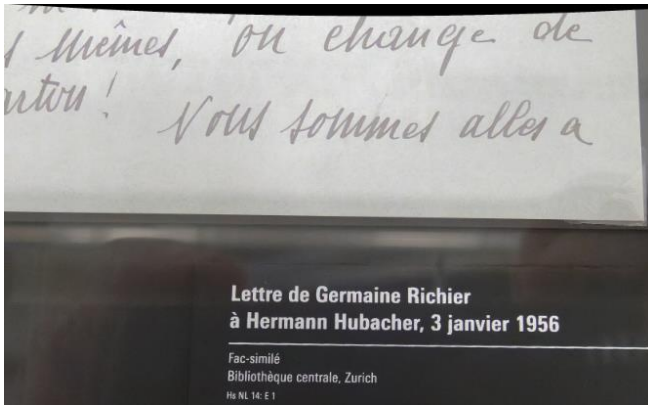 mêmes, on change de
Nous sommes alles a
Lettre de Germaine Richier
à Hermann Hubacher, 3 janvier 1956
Fac-similé
Bibliothèque centrale, Zurich
Hs NL 14: E 1